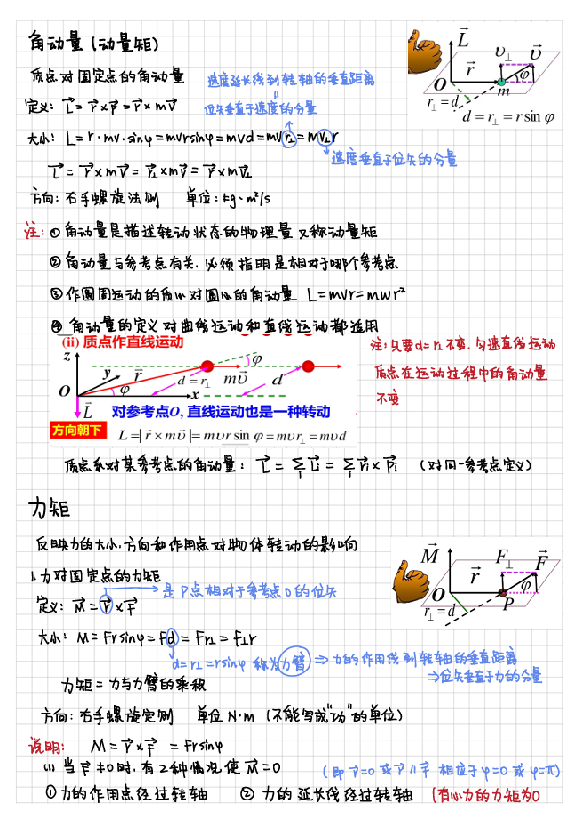 角动量 (动量矩)
质点对固定点的角动量
速度延长线到转轴的垂直距离
定义: L = r×p = r×mv
位矢垂直于速度的分量
大小: L = r·mv·sinφ = mvrsinφ = mvd = mvr⊥ = mv⊥r
L = r×mv = r⊥×mv = r×mv⊥
速度垂直于位矢的分量
方向: 右手螺旋法则 单位: kg·m²/s
L
r
v⊥
v
O
m
φ
r⊥=d
d = r⊥ = r sin φ
注: ① 角动量是描述转动状态的物理量 又称动量矩
② 角动量与参考点有关, 必须指明是相对于哪个参考点
③ 作圆周运动的质点对圆心的角动量 L=mvr=mωr²
④ 角动量的定义对曲线运动和直线运动都适用
(ii) 质点作直线运动
z
y
r
φ
d = r⊥
mv
d
φ
O
x
L
对参考点O, 直线运动也是一种转动
方向朝下
L =| r × mv |= mvr sin φ = mvr⊥ = mvd
注: 只要d=r⊥不变, 匀速直线运动
质点在运动过程中的角动量
不变
质点系对某参考点的角动量: L = ΣLi = Σri×pi (对同一参考点定义)
力矩
反映力的大小、方向和作用点对物体转动的影响
1.力对固定点的力矩
是P点相对于参考点O的位矢
定义: M = r×F
大小: M = Frsinφ = Fd = Fr⊥ = F⊥r
d=r⊥=rsinφ 称为力臂 ⇒ 力的作用线到转轴的垂直距离
⇒位矢垂直于力的分量
力矩 = 力与力臂的乘积
方向: 右手螺旋定则 单位 N·m (不能写成"功"的单位)
M
r
F⊥
F
O
P
φ
r⊥=d
说明: M = r×F = Frsinφ
(1) 当F≠0时, 有2种情况使M=0
(即r=0 或 r∥F 相应于φ=0 或 φ=π)
① 力的作用点经过转轴 ② 力的延长线经过转轴 (有心力的力矩为0